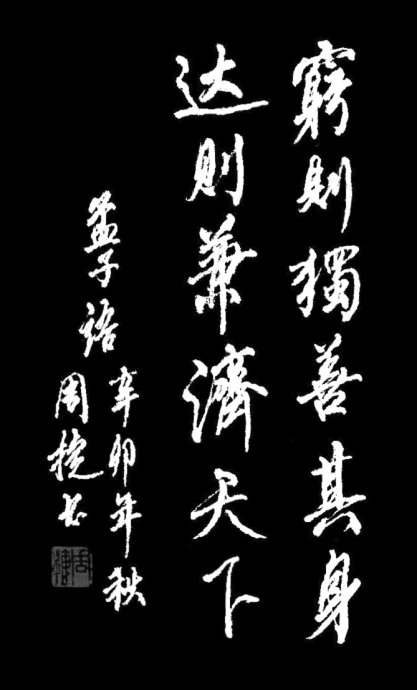 窮則獨善其身
达則兼濟天下
孟子語
辛卯年秋
周捷书